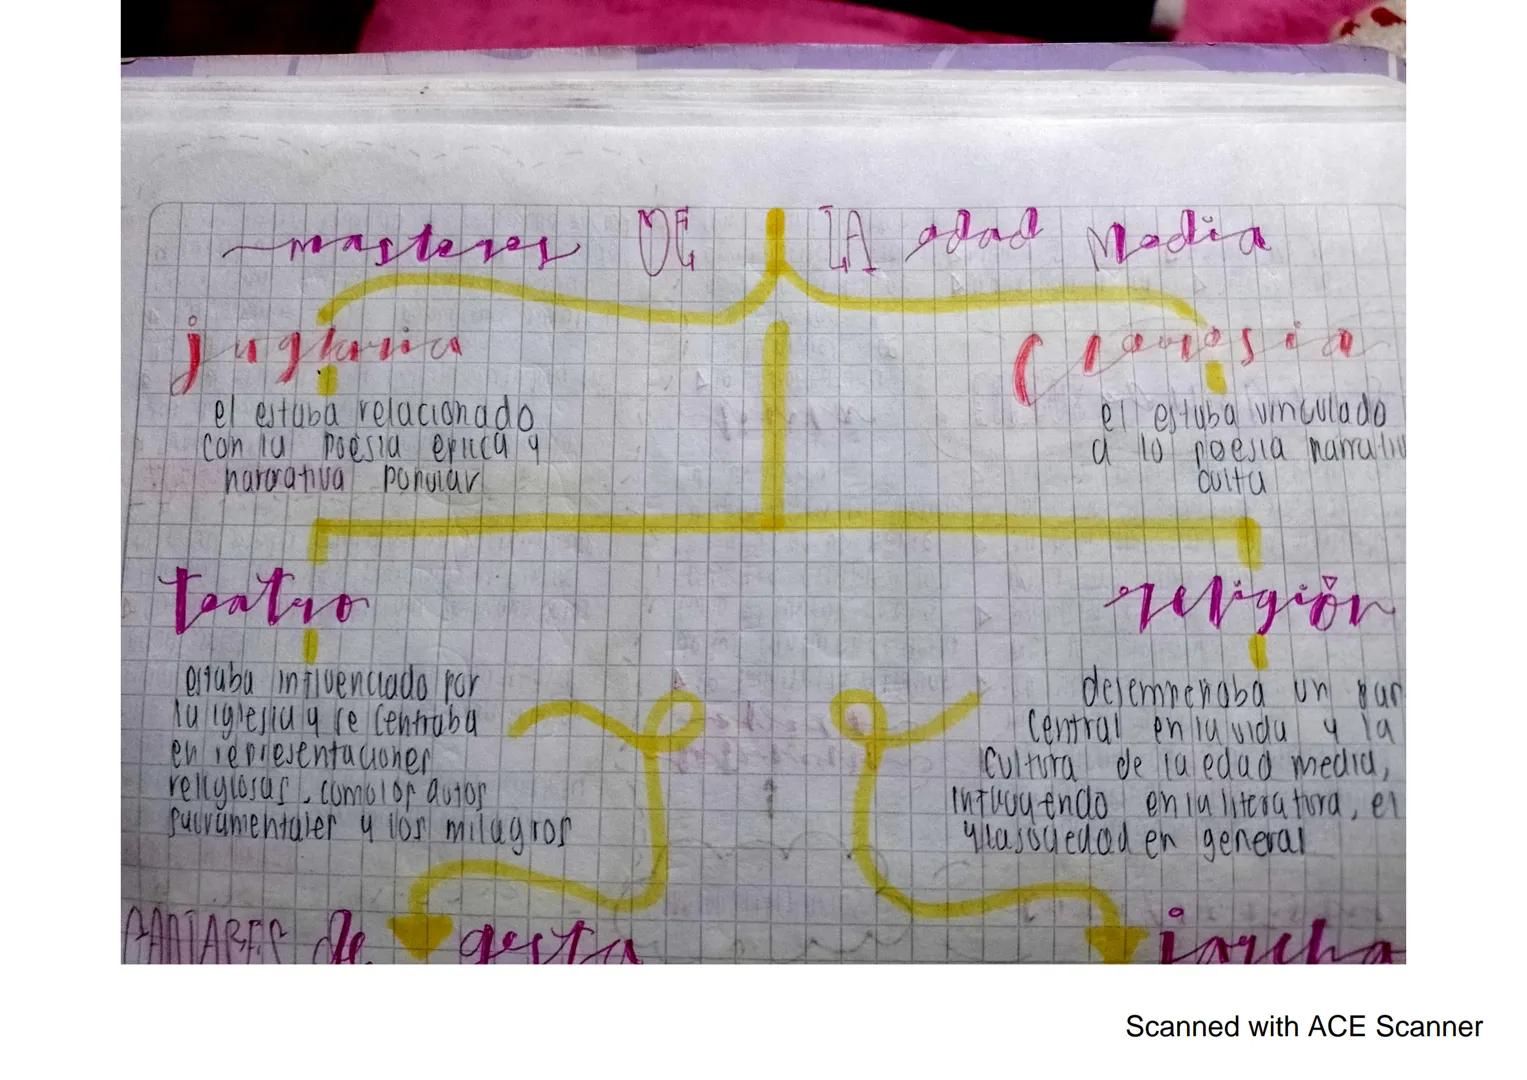 masteres DE LA edad Media
juglaria
el estaba relacionado
con la poesia epica y
narrativa popular
Cleresia
el estaba vinculado
a lo poesia narrativ
culta
teatro
estaba influenciado por
la iglesia y se centraba
en representaciones
religiosas, como los autos
sacramentales y los milagros
religión
desempeñaba un pap
central en la vida y la
cultura de la edad media,
influyendo en la literatura, el
y la sociedad en general
CANTARES de gesta
jarcha
Scanned with ACE Scanner